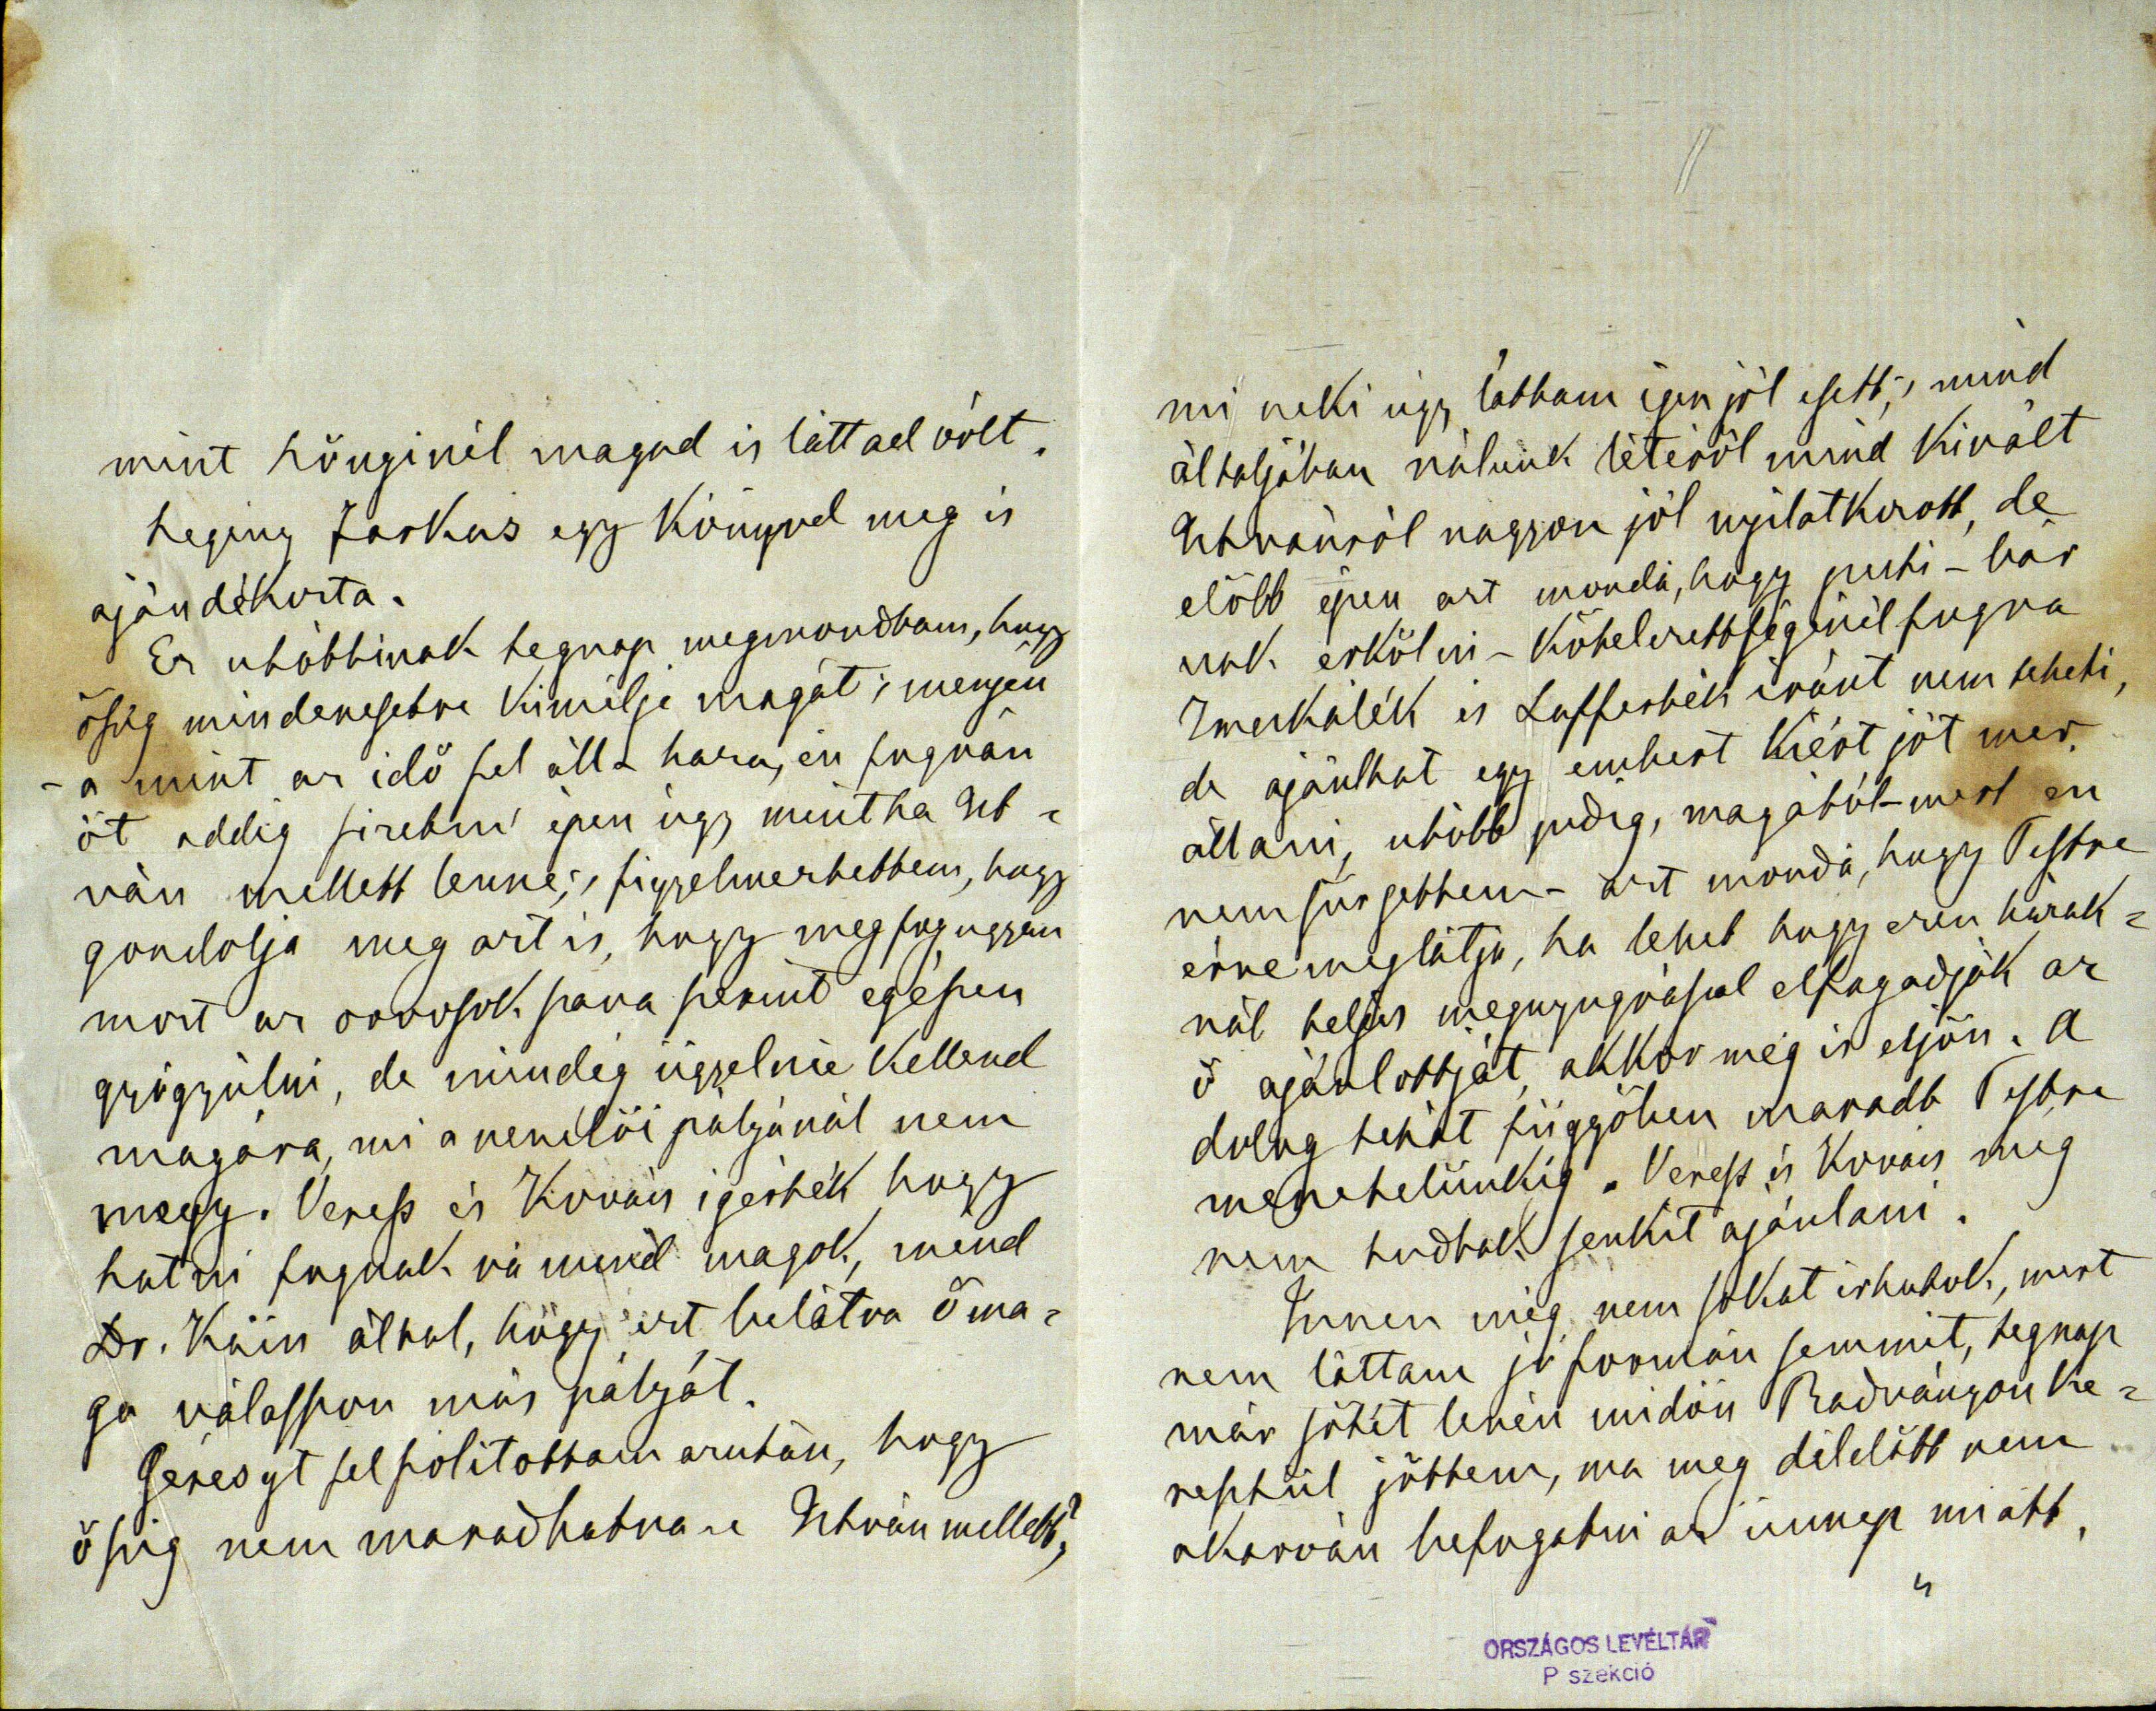 mint könyinél magad is láttad vólt.
Farkas egy könyvel meg is
ajándékozta.
Ez utóbbinak tegnap megmondtam, hogy
őszig mindenesetre kimélje magát; menjen
- a mint az idő fel áll - haza, én fognám
őt addig fizetni épen úgy mintha Ist=
ván mellett lenne; s figyelmeztettem, hogy
gondolja meg azt is, hogy meg fog ugyan
most az orvosok szava szerint egészen
gyógyúlni, de mindég ügyelnie kellend
magára, mi a nevelői pályánál nem
megy. Veress és Kovács igérték hogy
hatni fognak rá mind magok, mind
Dr. Káin által, hogy ezt belátva őma=
ga válasszon más pályát.
Géresyt felszólitottam azután, hogy
őszig nem maradhatna-e István mellett?
mi neki úgy láttam igen jól esett; s mind
általjában nálunk létéről mind kivált
Istvánról nagyon jól nyilatkozott, de
előbb épen azt mondá, hogy pesti - bár
csak erkölcsi - kötelezettségénél fogva
Zmeskálék és Lufftesték iránt nem teheti,
de ajánlhat egy embert kiért jót mer
állani, utóbb pedig, magától - mert én
nem sürgettem - azt mondá, hogy Pestre
érve meglátja, ha lehet hogy ezen házak=
nál teljes megnyugvással elfogadják az
ő ajánlottját, akkor még is eljön. A
dolog tehát függőben maradt Pestre
menetelünkig. Veress és Kovács meg
nem tudtak senkit ajánlani.
Innen még nem sokat irhatok, mert
nem láttam jó formán semmit, tegnap
már sötét levén midőn Radványon ke=
resztül jöttem, ma meg délelőtt nem
akarván befogatni az ünnep miatt,
ORSZÁGOS LEVÉLTÁR
P szekció